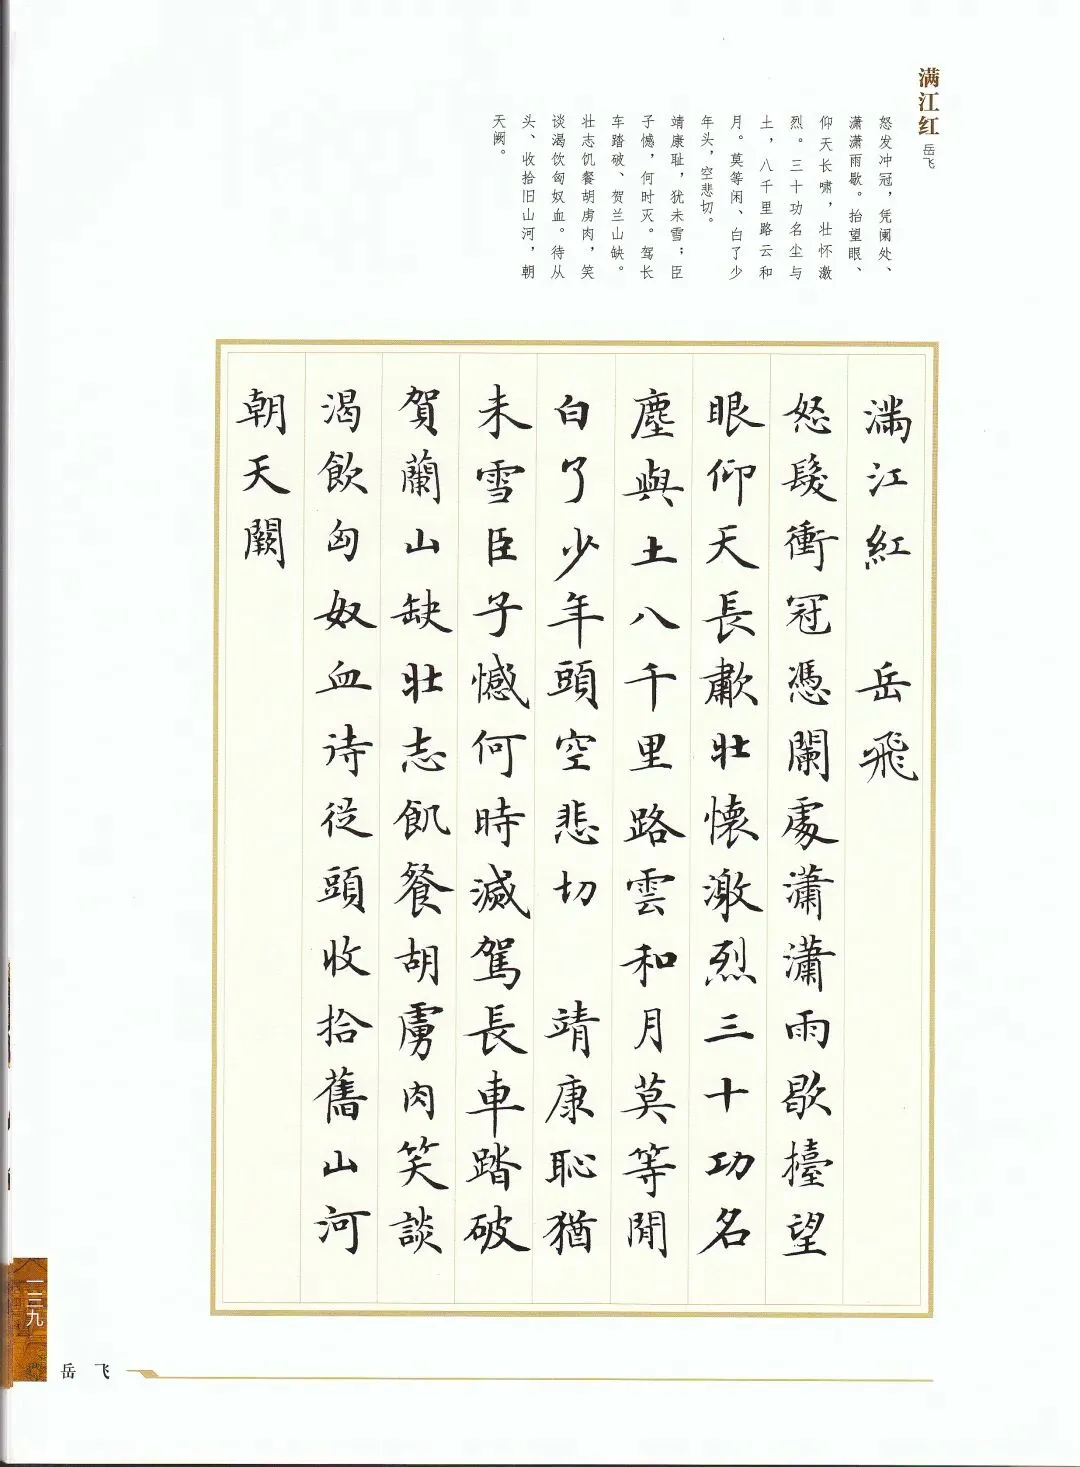 满江红 岳飞
怒发冲冠，凭阑处、
潇潇雨歇。抬望眼、
仰天长啸，壮怀激
烈。三十功名尘与
土，八千里路云和
月。莫等闲、白了少
年头，空悲切。
靖康耻，犹未雪；臣
子憾，何时灭。驾长
车踏破、贺兰山缺。
壮志饥餐胡虏肉，笑
谈渴饮匈奴血。待从
头、收拾旧山河，朝
天阙。
滿江紅 岳飛
怒髮衝冠憑闌處瀟瀟雨歇擡望
眼仰天長歗壯懷激烈三十功名
塵與土八千里路雲和月莫等閒
白了少年頭空悲切 靖康恥猶
未雪臣子憾何時滅駕長車踏破
賀蘭山缺壯志飢餐胡虜肉笑談
渴飲匈奴血待從頭收拾舊山河
朝天闕
一三九
岳飞